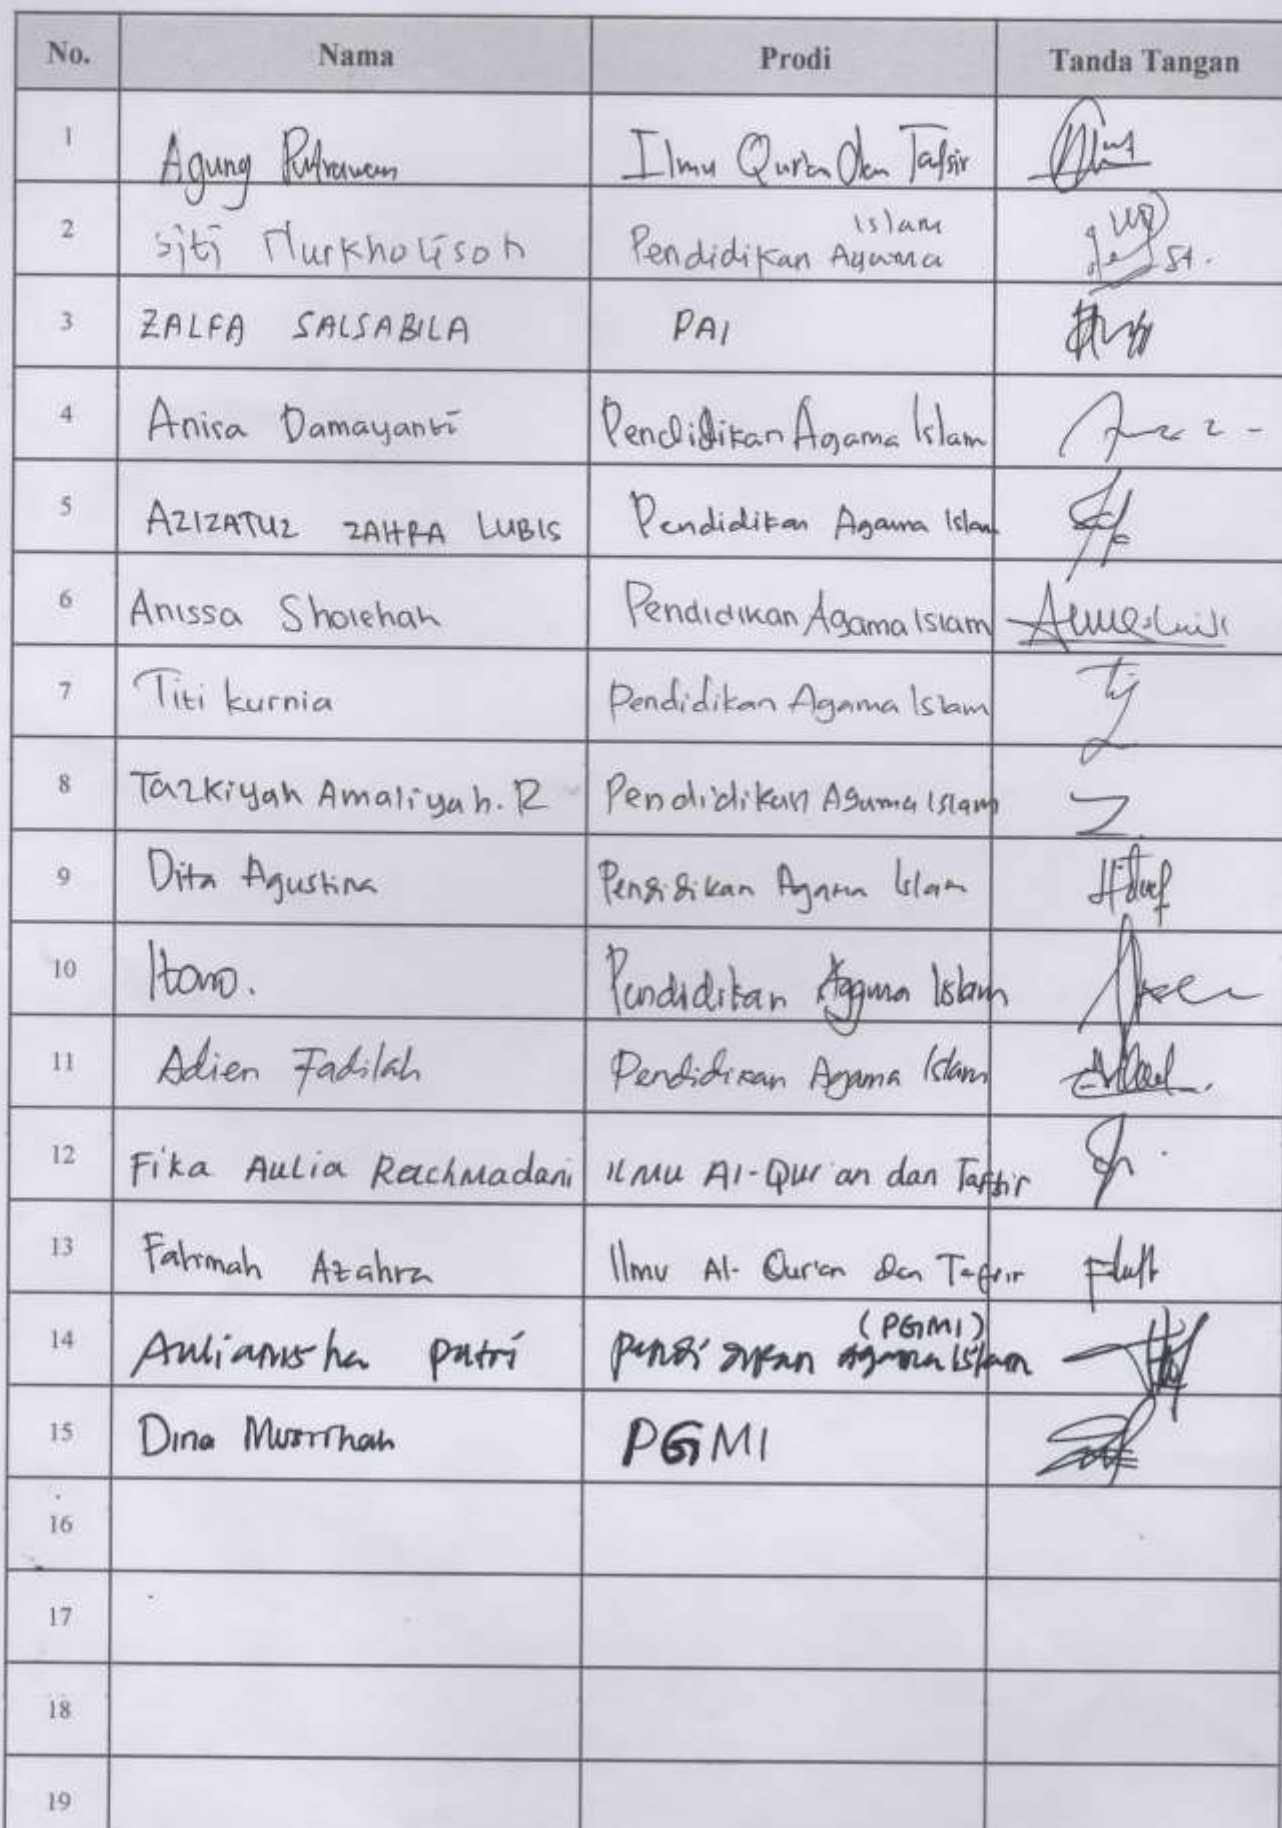 No. Nama Prodi Tanda Tangan
1 Agung Putrawan Ilmu Qur'an Dan Tafsir
2 Siti Nurkholisoh Pendidikan Agama Islam
3 ZALFA SALSABILA PAI
4 Anisa Damayanti Pendidikan Agama Islam
5 AZIZATUZ ZAHRA LUBIS Pendidikan Agama Islam
6 Anissa Sholehah Pendidikan Agama Islam
7 Titi kurnia Pendidikan Agama Islam
8 Tazkiyah Amaliyah. R Pendidikan Agama Islam
9 Dita Agustina Pendidikan Agama Islam
10 Pendidikan Agama Islam
11 Adien Fadilah Pendidikan Agama Islam
12 Fika Aulia Rachmadani Ilmu Al-Qur'an dan Tafsir
13 Fatimah Azahra Ilmu Al-Qur'an dan Tafsir
14 Aulianisha putri pendidikan agama islam (PGMI)
15 Dina PGMI
16
17
18
19